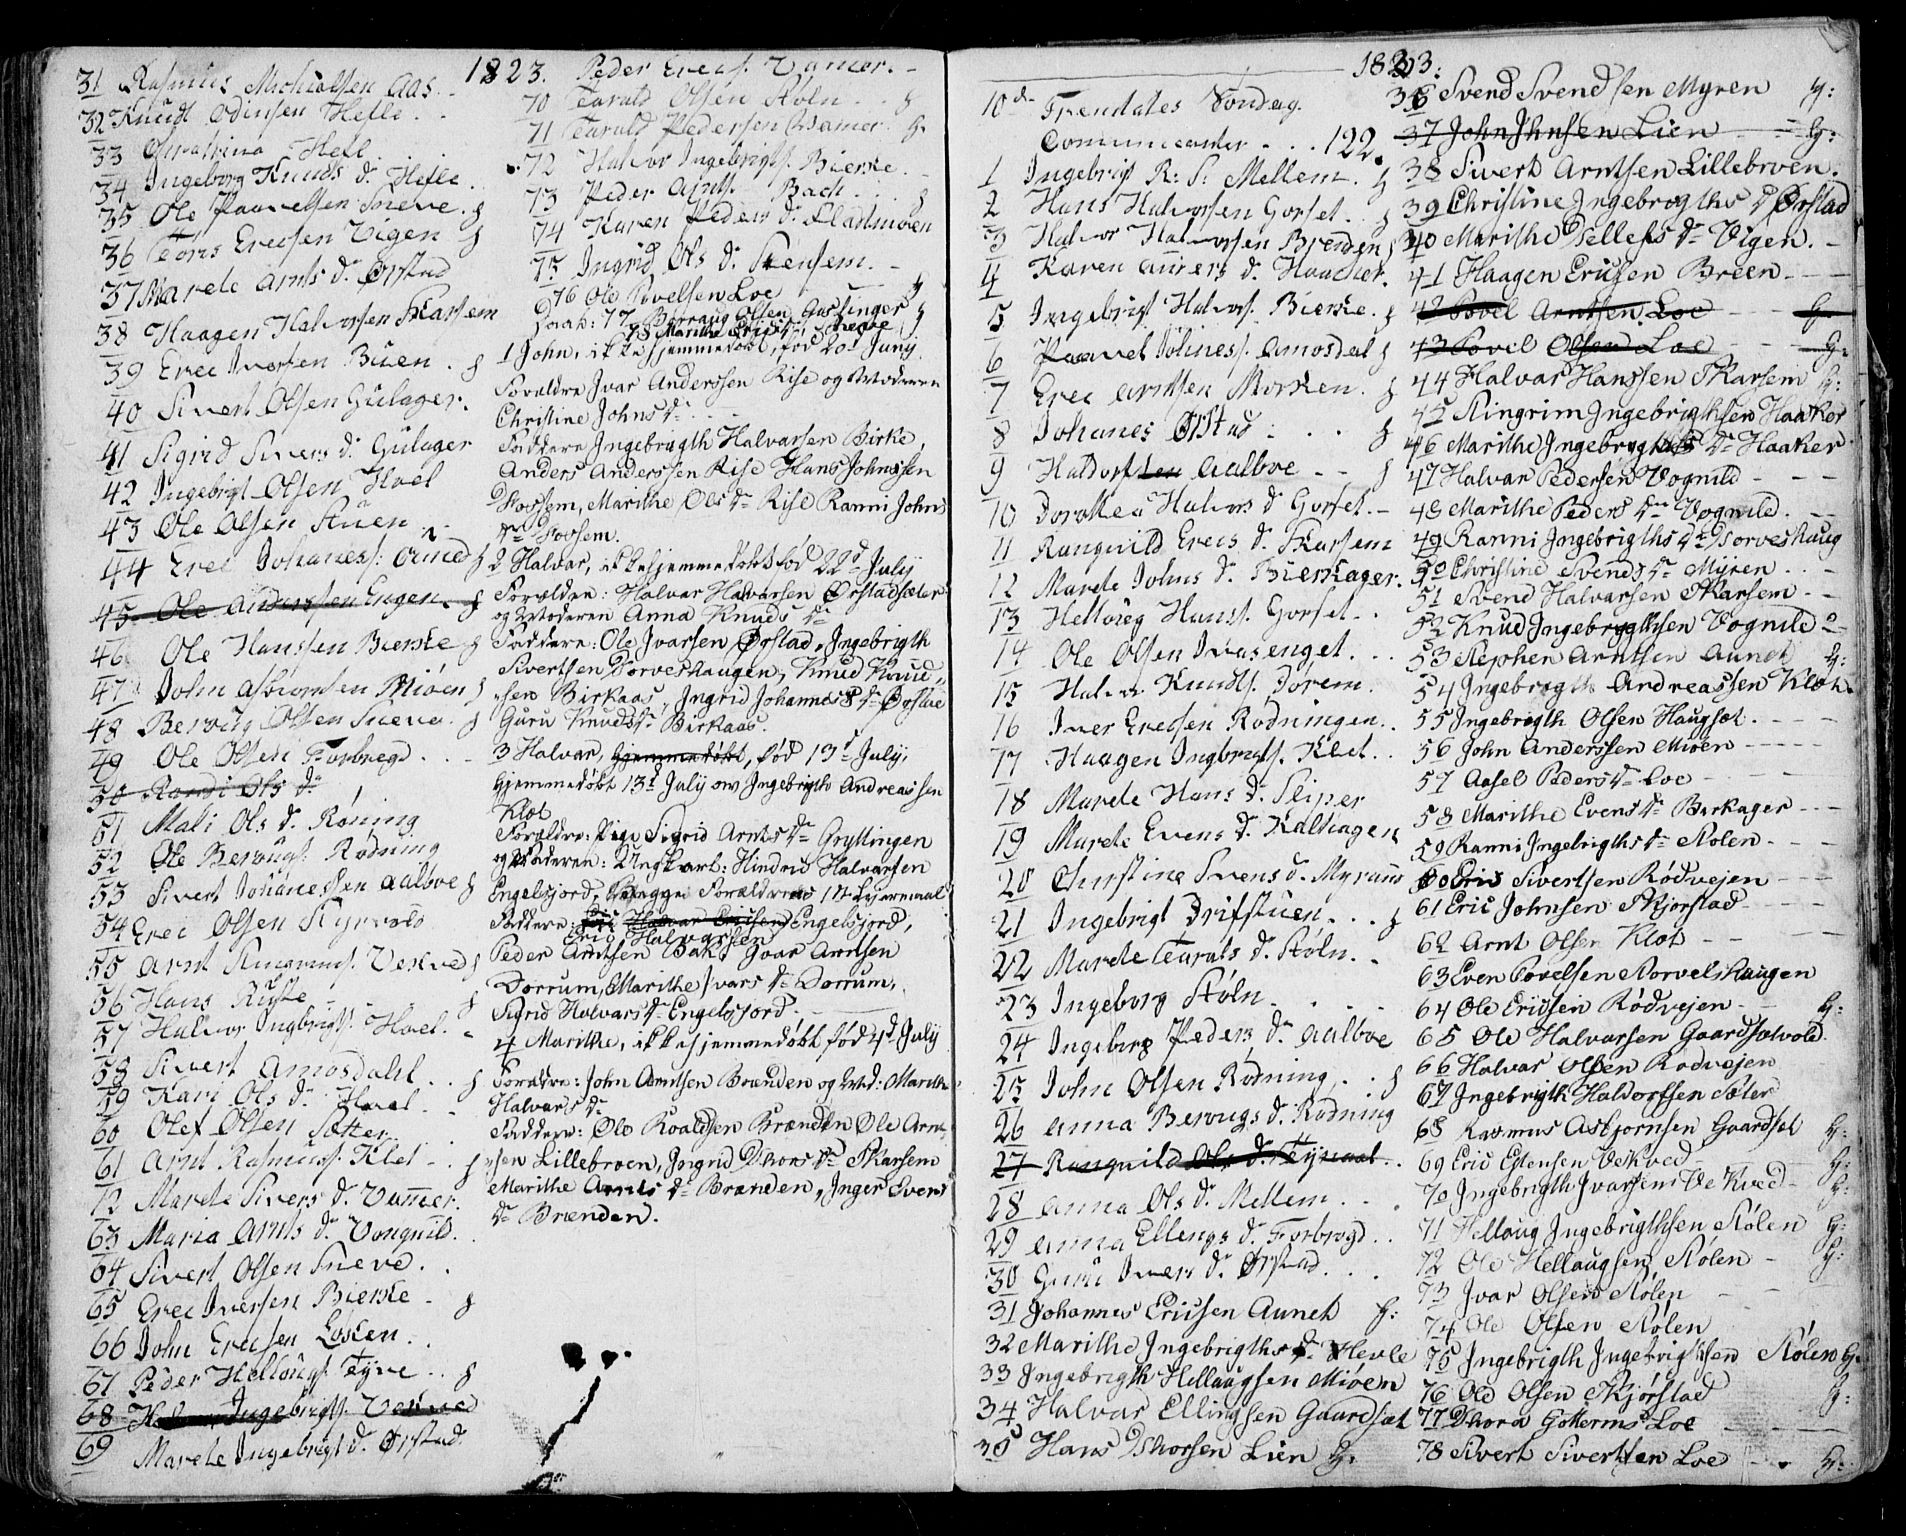 1823.
31 Rasmus Michialsen Aas.
32 Knudt Odinsen Hefle.
33 Cathrina Hefl
34 Ingeborg Knuds dr Hefle.
35 Ole Paavelsen Sneve. g
36 Tøris Erecsen Vigen g
37 Marele Arnts dr Ørstad
38 Haagen Halvorsen Skarsem
39 Erec Iversen Buen. g
40 Sivert Olsen Gulager.
41 Sigrid Sivers dr Gulager
42 Ingebrigt Olsen Hoel
43 Ole Olsen Stuen
44 Erec Johaness: Aüned g
45 Ole Anderssen Engen. g
46 Ole Hanssen Bierke g
47 John Asbiornsen Miøen g
48 Beroug Olsen Sneve. g
49 Ole Olsen Forbregd
50 Randi Ols dr
51 Mali Ols dr Røning
52 Ole Berougs: Rødning
53 Sivert Johanessen Aalboe g
54 Erec Olsen
55 Arnt Vekved g
56 Hans Ruste g
57 Halvor Ingbrigts. Hoel.
58 Sivert Amosdahl g
59 Kari Ols dr Hoel
60 Olef Olsen Sætter
61 Arnt Rasmuss. Klet g
12 Marele Sivers dr Vamer.
63 Maria Arnts dr Vongnild.
64 Sivert Olsen Sneve.
65 Erec Iversen Bierke g
66 John Erecsen Løsen
67 Peder Hellougs. Tyve g
68 Ingebrigts. Vekved
69 Marele Ingebrigt dr Ørstad
Peder Erecs. Vamer.
70 Tarald Olsen Støln g
71 Tarald Pedersen Wamer g
72 Halvor Ingebrigts. Bierke.
73 Peder Arnts Bach g
74 Karen Peders dr Sladmoen
75 Ingrid Ols dr Stensem.
76 Ole Povelsen Loe g
Daab: 77 Berraug Olsen Gustinger g
78 Marithe Erics dr Sneve g
1 John, ikke hjemmedøbt, fød 20d Juny
Forældre Ivar Anderssen Rise og Moderen
Christine Johns dr
Faddere Ingebrigth Halvarsen Birke,
Anders Anderssen Rise Hans Johnssen
Fossem, Marithe Ols dr Rise Ranni Johns
dr Fossem.
2 Halvar, ikke hjemmedøbt fød 22d July
Forældre: Halvar Halvarsen Ørstadsæter
og Moderen Anna Knuds dr
Faddere: Ole Ivarsen Ørstad, Ingebrigth
Sivertsen Dorveshaugen, Knud Knud„
„sen Birkaas, Ingrid Johannes dr Ørstad
Guru Knuds dr Birkaas.
3 Halvar, hjemmedøbt, fød 13d July,
hjemmedøbt 13d July ow Ingebrigth Andreassen
Kløt
Forældre: Pige Sigrid Arnts dr Gryttingen
og Faderen: Ungkarl: Hindrid Halvarsen
Engelsjord, Begge Forældrenes 1st Lejermaal
Faddere: Eric Halvar Ericsen Engelsjord,
Eric Halvarsen
Peder Arntsen Bak, Goar Arntsen
Dorrum, Marithe Ivars dr Dorrum,
Sigrid Halvars dr Engelsjord.
4 Marithe, ikke hjemmedøbt fød 4d July
Forældre: John Arntsen Brænden og Md: Marithe
Halvars dr
Faddere: Ole Roaldsen Brænden Ole Arnt„
„sen Lillebroen, Ingrid Thors dr Skarsem
Marithe Arnts dr Brænden, Inger Evens
dr Brænden.
1823:
10de Trenitates Søndag.
Communicanter 122.
1 Ingebrigt R: S: Mellem. g
2 Hans Halvorsen Gorset. g
3 Halvor Halvorsen Brenden g
4 Karen Anders dr Haacker.
5 Ingebrigt Halvors. Bierke. g
6 Paavel Johness. Amosdal g
7 Erec Arntsen Morken. g
8 Johanes Ørstad g
9 Haldorsten Aalboe g
10 Dorothea Halvors dr Gorset.
11 Rangnild Erecs dr Skarsem
12 Marele Johns dr Bierkager.
13 Helloug Hanss. Gorset.
14 Ole Olsen Ivasenget.
15 Halvor Knudts. Dorem.
16 Iver Erecsen Rødningen.
17 Haagen Ingbrigts. Klet.
18 Marele Hans dr Sliper
19 Marele Evens dr Kaltiagen
20 Christine Svens dr Myraüns
21 Ingebrigt Drifstuen g
22 Marele Taralds dr Støln.
23 Ingeborg Støln
24 Ingebirg Peders dr Aalboe
25 John Olsen Rødning g
26 Anna Berougs dr Rødning
27 Rangnild Ols dr
28 Anna Ols dr Mellem
29 Anna Ellengs dr Forbregd
30 Guru Ivers dr Ørstad
31 Johannes Ericsen Aunet g:
32 Marithe Ingebrigths dr Hevle
33 Ingebrigth Hellaugsen Miøen
34 Halvar Ellingsen Gaardsæt
35 Hans Thorsen Lien g:
36 Svend Svendsen Myren g:
37 John Jhnsen Lien g:
38 Sivert Arntsen Lillebroen.
39 Christine Ingebrigths dr Ørstad
40 Marithe Tellefs dr Vigen.
41 Haagen Ericsen Breen
42 Povel Arntsen Loe g
43 Povel Olsen Loe g:
44 Halvar Hanssen Skarsem g:
45 Stingrim Ingebrigthsen Haaker
46 Marithe Ingebrigths dr Haaker
47 Halvar Pedersen Vognild
48 Marithe Peders dr Vognild.
49 Ranni Ingebrigths dr Dorveshaug
50 Christine Svends dr Myren
51 Svend Halvarsen Skarsem
52 Knud Ingebrygthsen Vognild
53 Stephen Arntsen Aunet g:
54 Ingebrigth Andreassen Kløt
55 Ingebrigth Olsen Haugsæt.
56 John Anderssen Miøen
57 Aasel Peders dr Loe
58 Marithe Evens dr Birkager
59 Ranni Ingebrigths dr Stølen
60 Eric Sivertsen Rødvejen
61 Eric Johnsen Skjørstad
62 Arnt Olsen Kløt
63 Even Povelsen Norvelshaugen
64 Ole Ericsen Rødvejen g:
65 Ole Halvarsen Gaardsætvold.
66 Halvar Olsen Rødvejen
67 Ingebrigth Haldorssen Sæter
68 Rasmus Asbjørnsen Gaardsæt g:
69 Eric Estensen Vekved g:
70 Ingebrigth Ivarsen Vekved g:
71 Hellaug Ingebrigthsen Stølen g:
72 Ole Hellaugsen Stølen g:
73 Ivar Olsen Stølen
74 Ole Olsen Stølen
75 Ingebrigth Ingebrigthsen Stølen g.
76 Ole Olsen Skjørstad g:
77 Thora Gotterms Loe
78 Sivert Sivertsen Loe g: